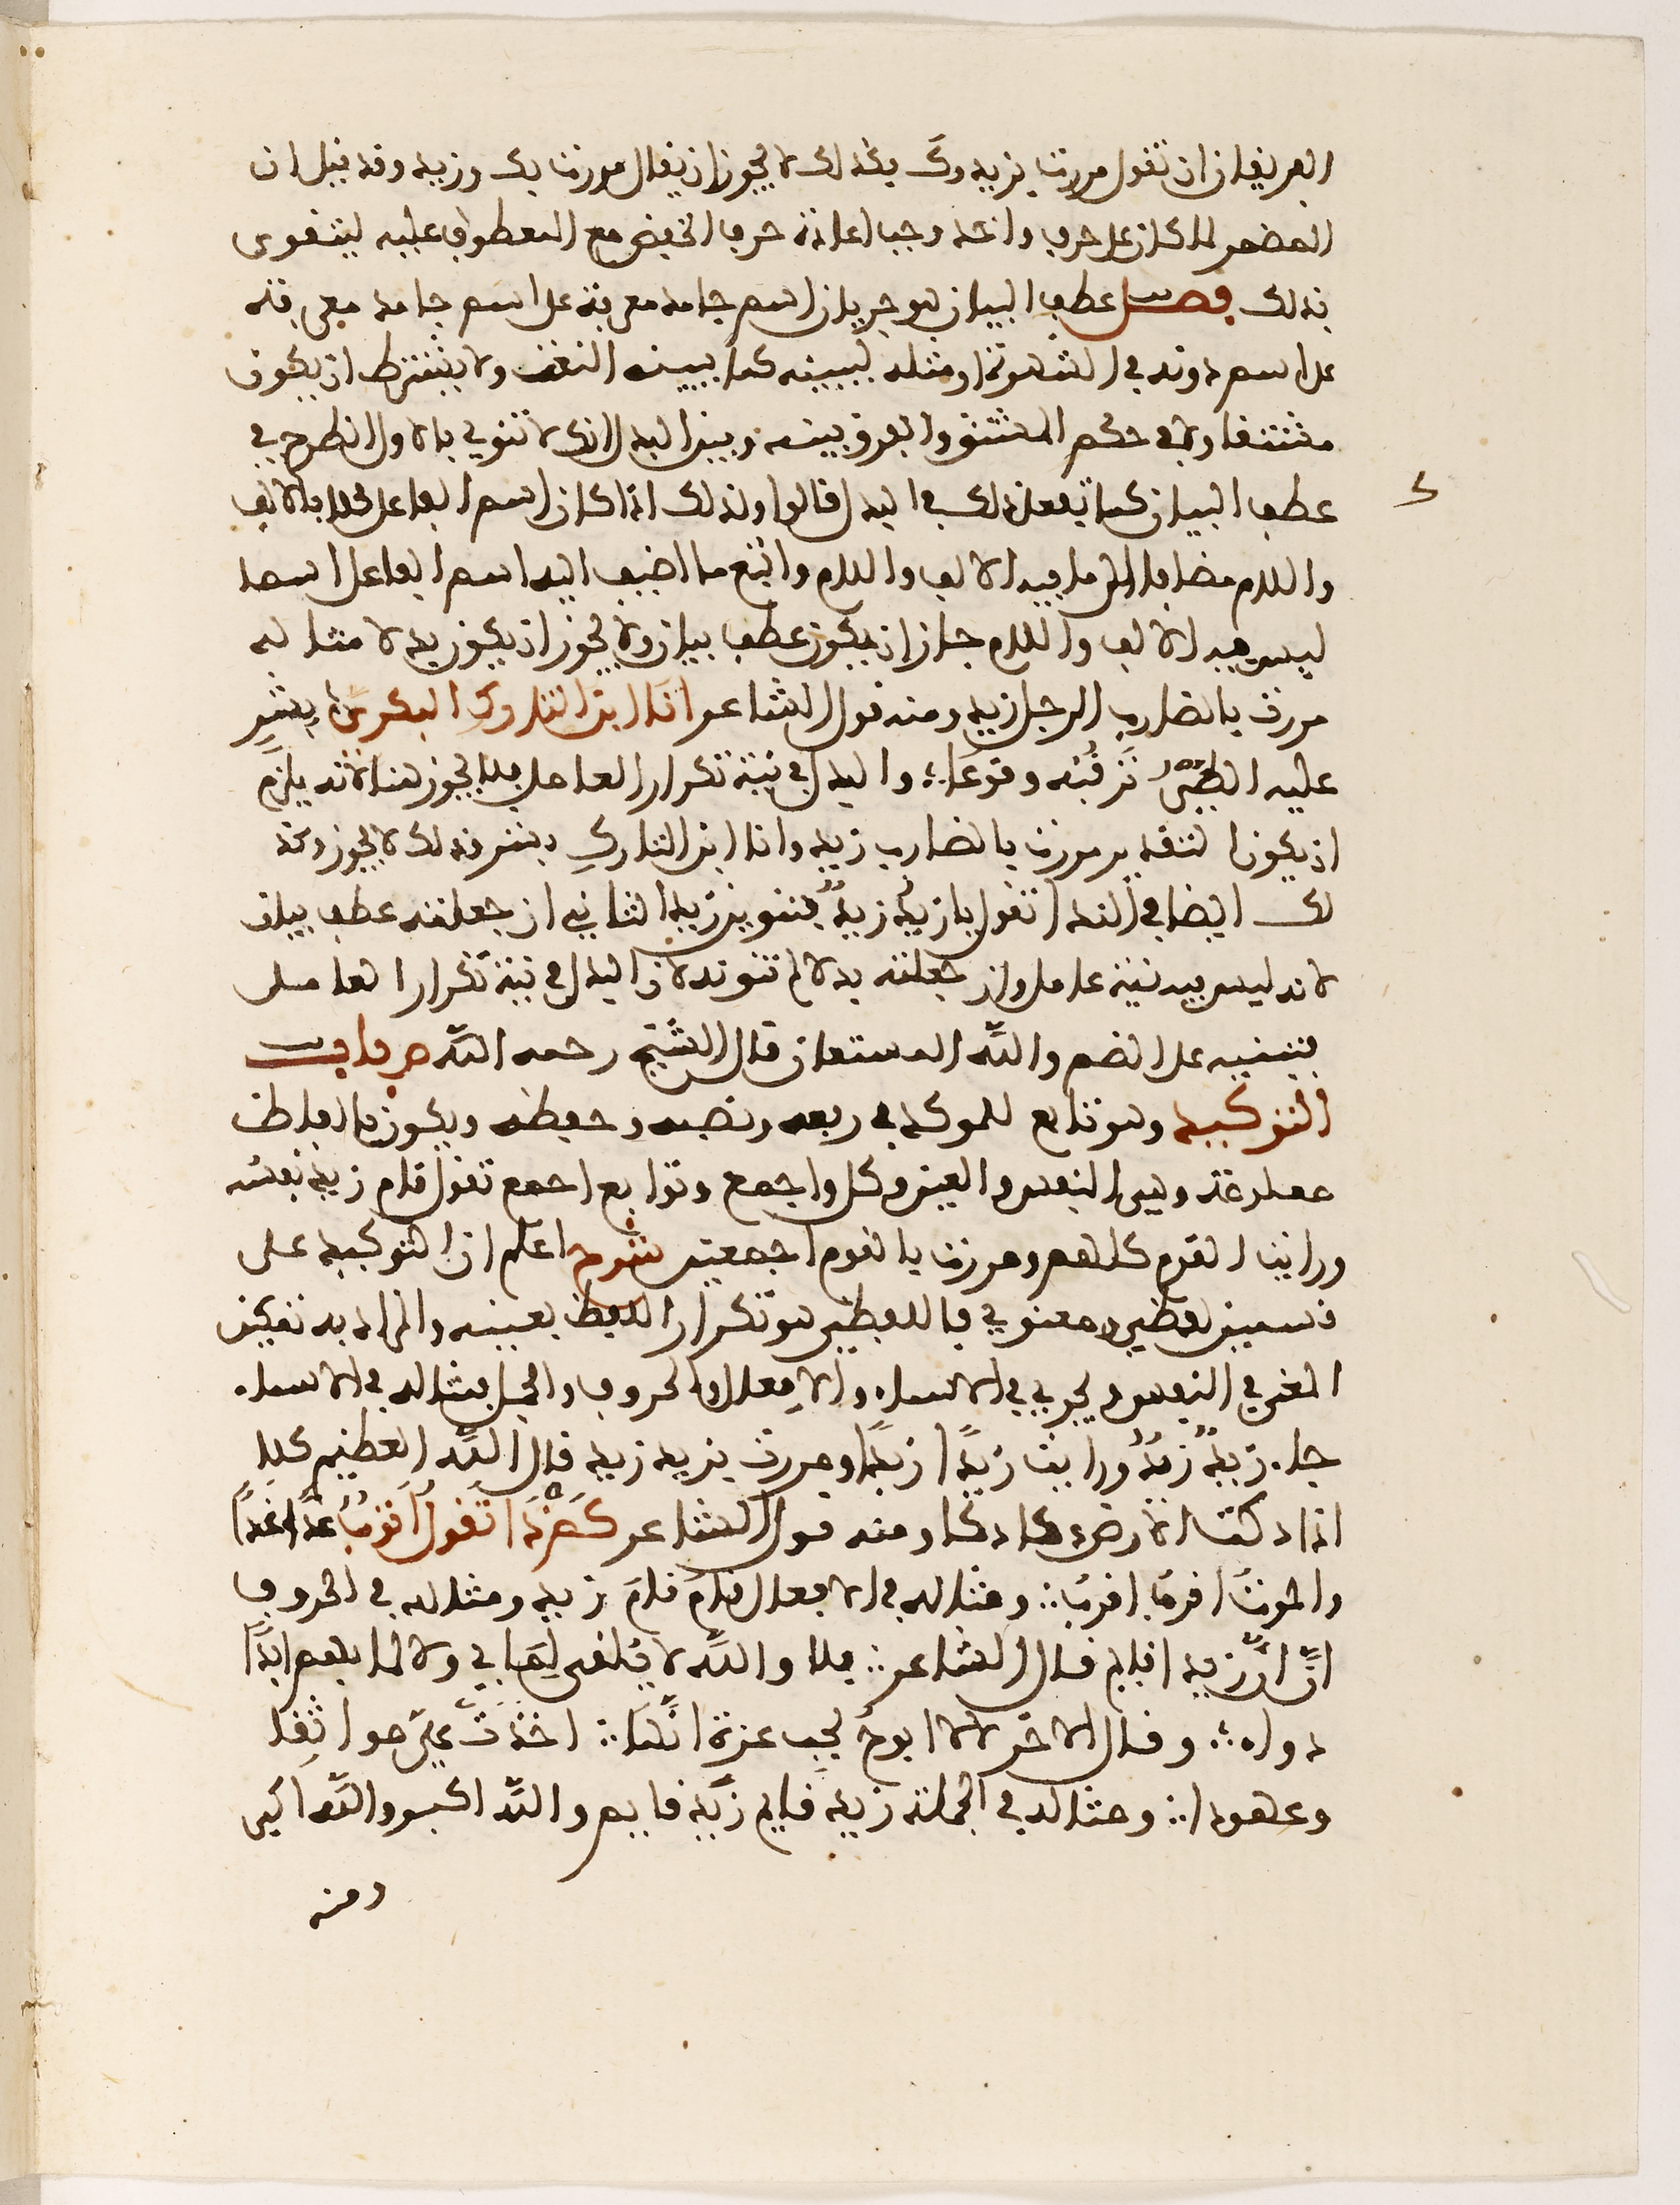 الفريقان ان تقول مررت بزيد وك فكذلك لا يجوز ان يقال مررت بك وزيد وقد قيل ان
المضمر لما كان على حرف واحد وجب اعادة حرف الخفض مع المعطوف عليه ليتقوى
بذلك فصل عطف البيان هو جريان اسم جامد معرفة على اسم جامد معرفة
على اسم دونه في الشهرة او مثله ليبينه كما يبينه النعت ولا يشترط ان يكون
مشتقا ولا في حكم المشتق والفرق بينه وبين البدل انك لا تنوي بالاول الطرح في
عطف البيان كما تفعل ذلك في البدل قالوا ولذلك اذا كان اسم الفاعل محلا بالالف
واللام مضافا الى ما فيه الالف واللام واتبع ما اضيف اليه اسم الفاعل اسما
ليس فيه الالف واللام جاز ان يكون عطف بيان ولا يجوز ان يكون بدلا مثاله
مررت بالضارب الرجل زيد ومنه قول الشاعر انا ابن التارك البكري بشر
عليه الطير ترقبه وقوعا ؛ والبدل في نية تكرار العامل فلا يجوز هنا لانه يلزم
ان يكون التقدير مررت بالضارب زيد وانا ابن التارك بشر وذلك لا يجوز وكذ
لك ايضا في الندا تقول يا زيد زيد بتنوين زيد الثاني ان جعلته عطف بيان
لانه ليس فيه نية عامل وان جعلته بدلا لم تنونه لان البدل في نية تكرار العامل
فتبنيه على الضم والله المستعان قال الشيخ رحمه الله ص باب
التوكيد وهو تابع للموكد في رفعه ونصبه وخفظه ويكون بالفاظ
معلومة وهي النفس والعين وكل واجمع وتوابع اجمع تقول قام زيد نفسه
ورايت القوم كلهم ومررت بالقوم اجمعين شرح اعلم ان التوكيد على
قسمين لفظي ومعنوي فاللفظي هو تكرار اللفظ بعينه والمراد به تمكين
المعنى في النفس ويجري في الاسماء والافعال والحروف والجمل مثاله في الاسماء
جاء زيد زيد ورايت زيدا زيدا ومررت بزيد زيد قال الله العظيم كلا
اذا دكت الارض دكا دكا ومنه قول الشاعر كم ذا تقول اتوب غدا غدا
والموت اقرب اقرب ∴ ومثاله في الافعال قام قام زيد ومثاله في الحروف
ان ان زيدا قايم قال الشاعر ∴ فلا والله لا يلفى لما بي ولا للما بهم ابدا
دواء ∴ وقال الاخر لا لا ابوح بحب عزة انها ∴ اخذت علي مواثقا
وعهودا ∴ ومثاله في الجملة زيد قايم زيد قايم والله اكبر والله اكبر
ومنه